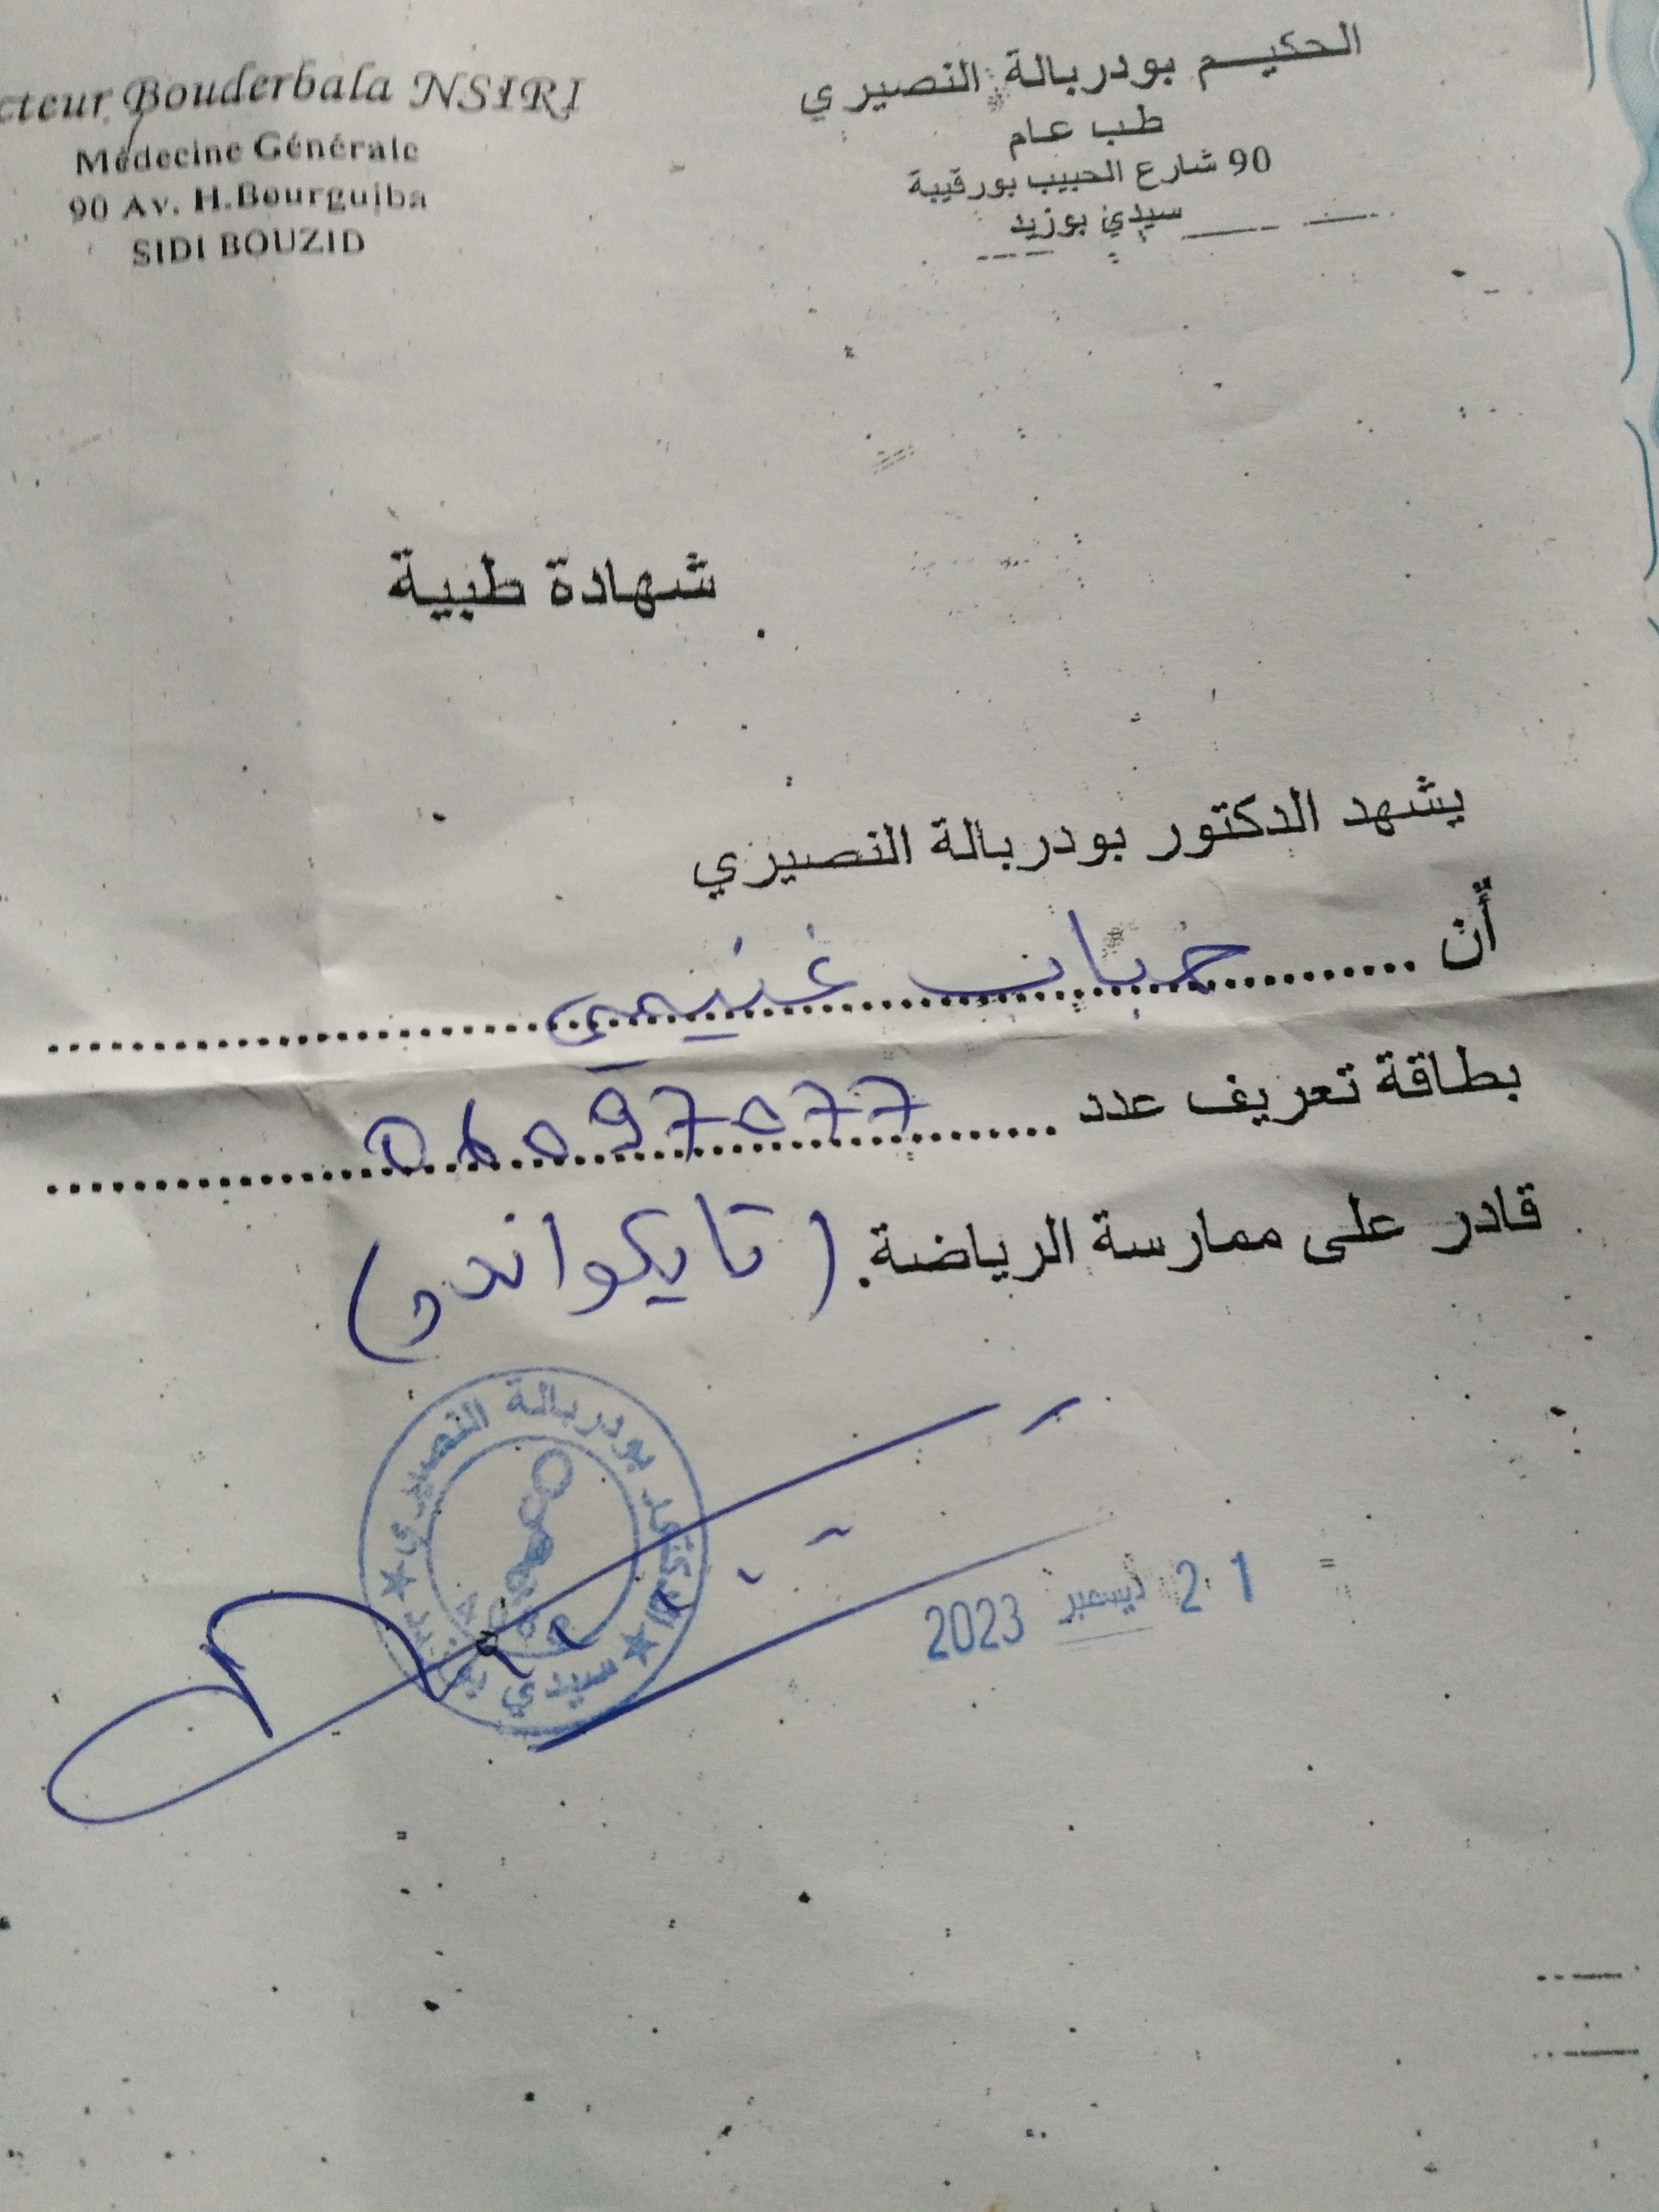 cteur Bouderbala NSIRI
Médecine Générale
90 Av. H.Bourguiba
SIDI BOUZID
الحكيم بودربالة النصيري
طب عام
90 شارع الحبيب بورقيبة
سيدي بوزيد
شهادة طبية
يشهد الدكتور بودربالة النصيري
أن .......... غنيمي ..........
بطاقة تعريف عدد ..........
قادر على ممارسة الرياضة. (تايكواندو)
الدكتور بودربالة النصيري
سيدي بوزيد
21 ديسمبر 2023